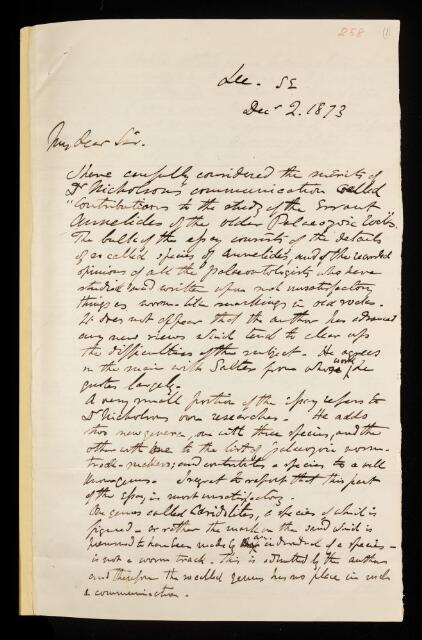 258 (1)
Lee. SE
Decr 2. 1873
My dear Sir.
I have carefully considered the merits of
Dr Nicholson's communication called
"Contributions to the study of the Errant
Annelides of the older Palaeozoic Rocks.
The bulk of the essay consists of the details
of so called species of annelides, and of the recorded
opinions of all the palaeontologists who have
studied and written upon such unsatisfactory
things as worm-like markings in old rocks.
It does not appear that the author has advanced
any new views which tend to clear up
the difficulties of the subject. He agrees
in the main with Salter from whose work he
quotes largely.
A very small portion of the essay refers to
Dr Nicholsons own researches. He adds
two new genera, one with three species, and the
other with one to the list of palaeozoic worm-
track-makers; and contributes a species to a well
known genus. I regret to report that this part
of the Essay is most unsatisfactory.
One genus called Caridolites, a species of which is
figured - or rather the mark on the sand which is
presumed to have been made by an individual of a species -
is not a worm track. This is admitted by the author
and therefore the so called genus has no place in such
a communication.